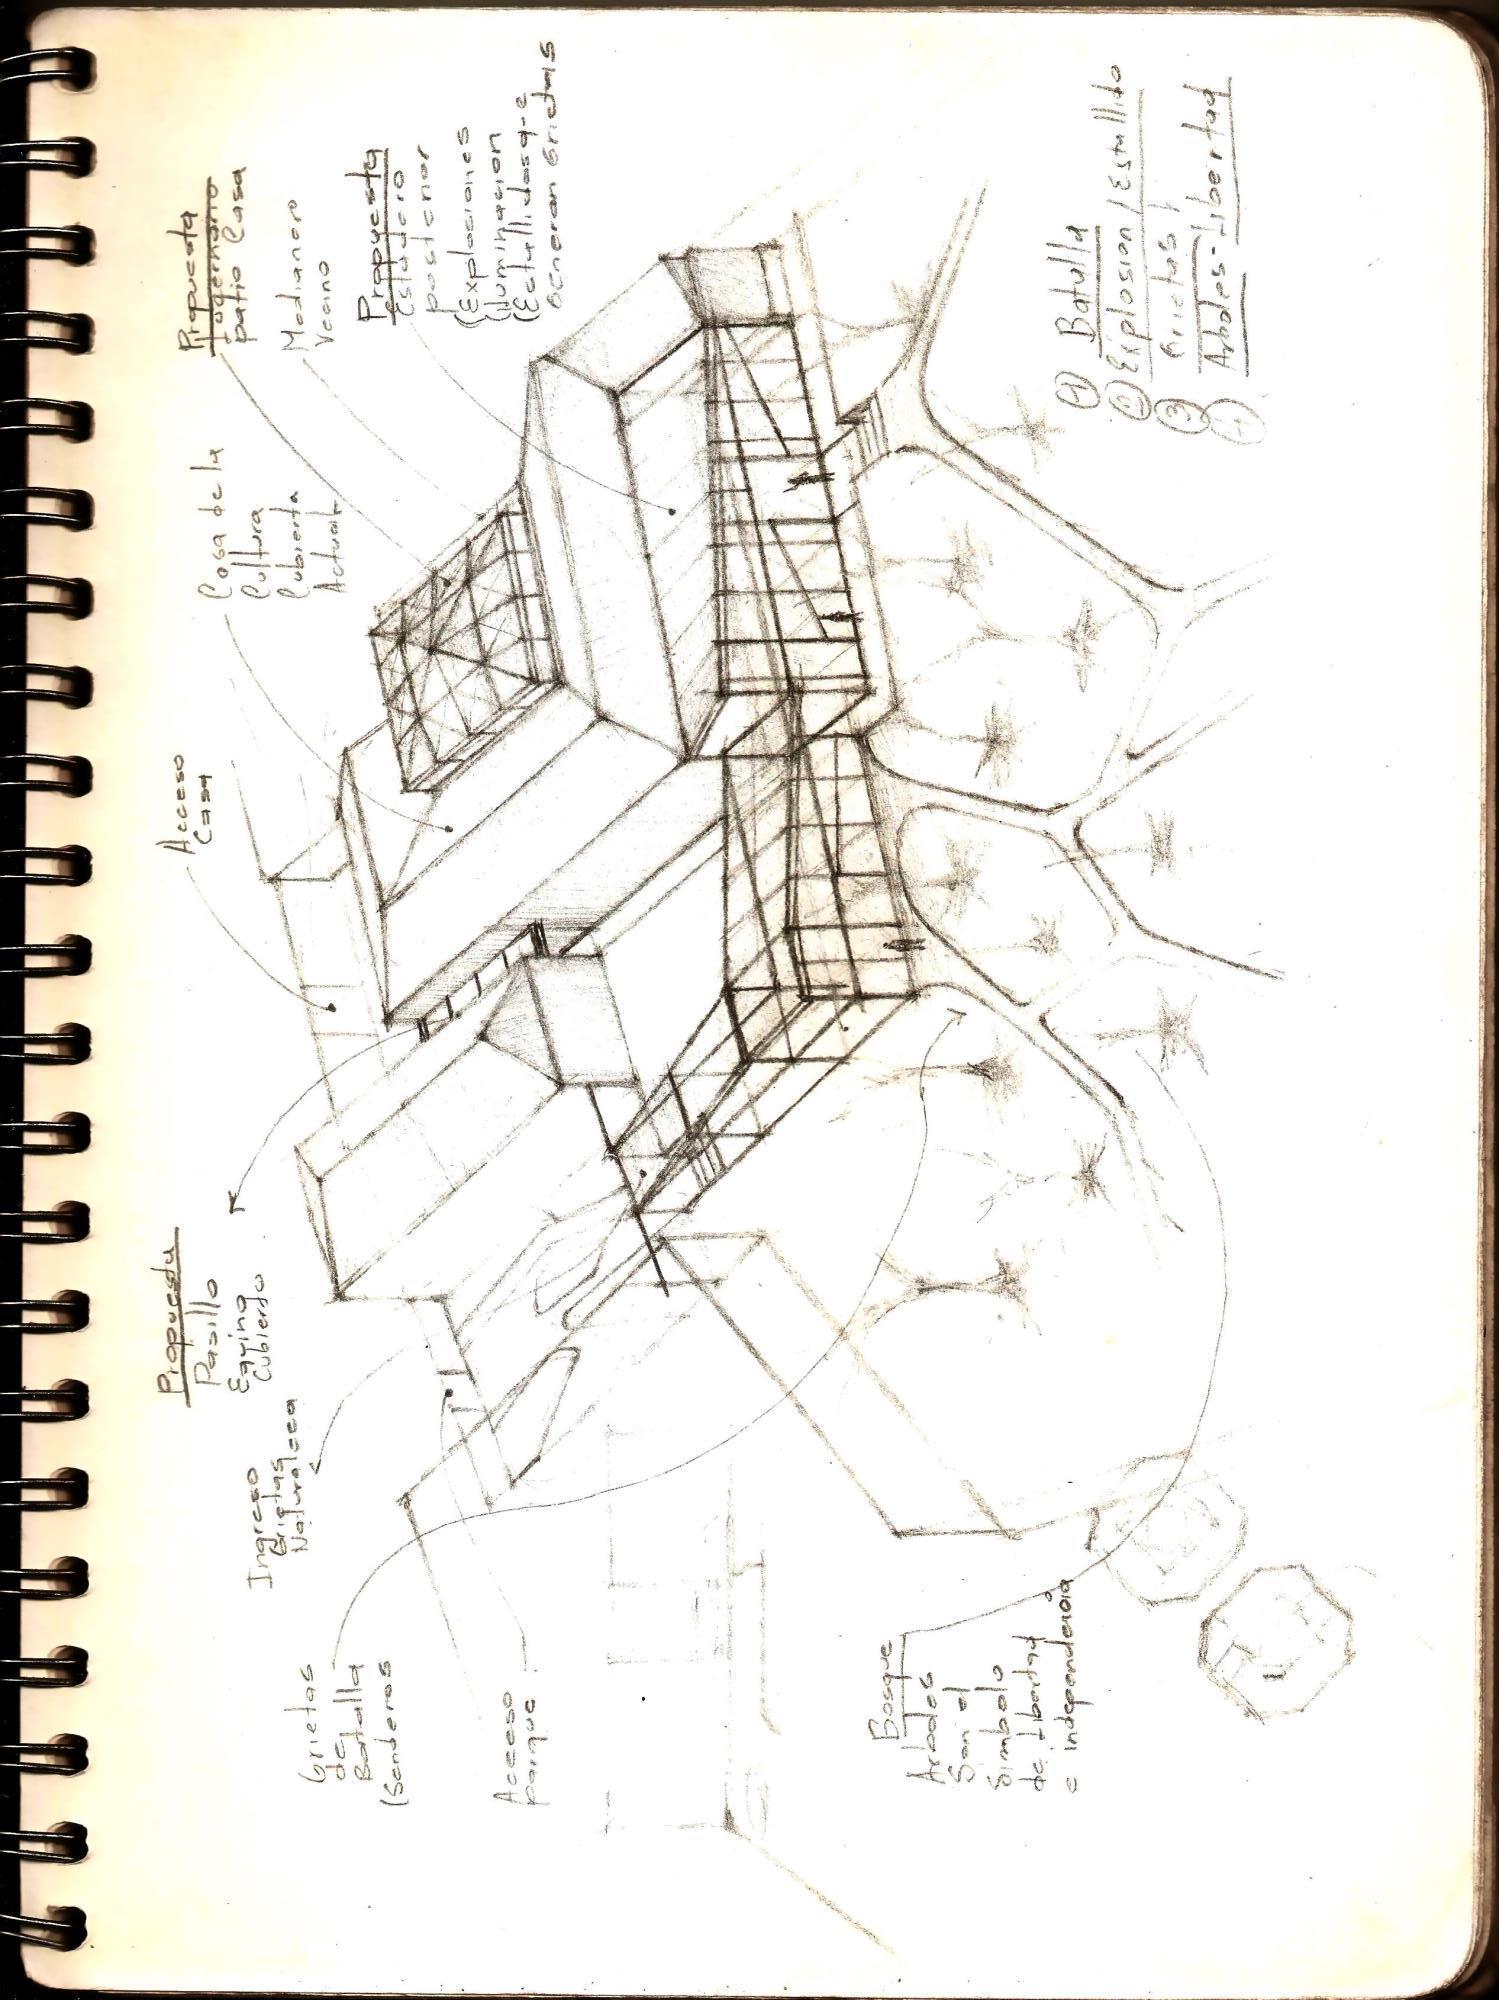 Propuesta
Pasillo
Eaying
Cubierto
Acceso
Casa
Casa de la
Cultura
Cubierta
Actual
Propuesta
patio Casa
Medianero
Vecino
Propuesta
posterior
(Explosiones
Iluminacion
(Estallidos q-e
Generan Grietas
Ingreso
Grietas
Naturaleza
Grietas
de
Batalla
(Senderos
Acceso
parque
Bosque
Arboles
Son el
Simbolo
de libertad
e independencia
① Batalla
② Explosion / Estallido
③ Grietas
④ Arboles-libertad